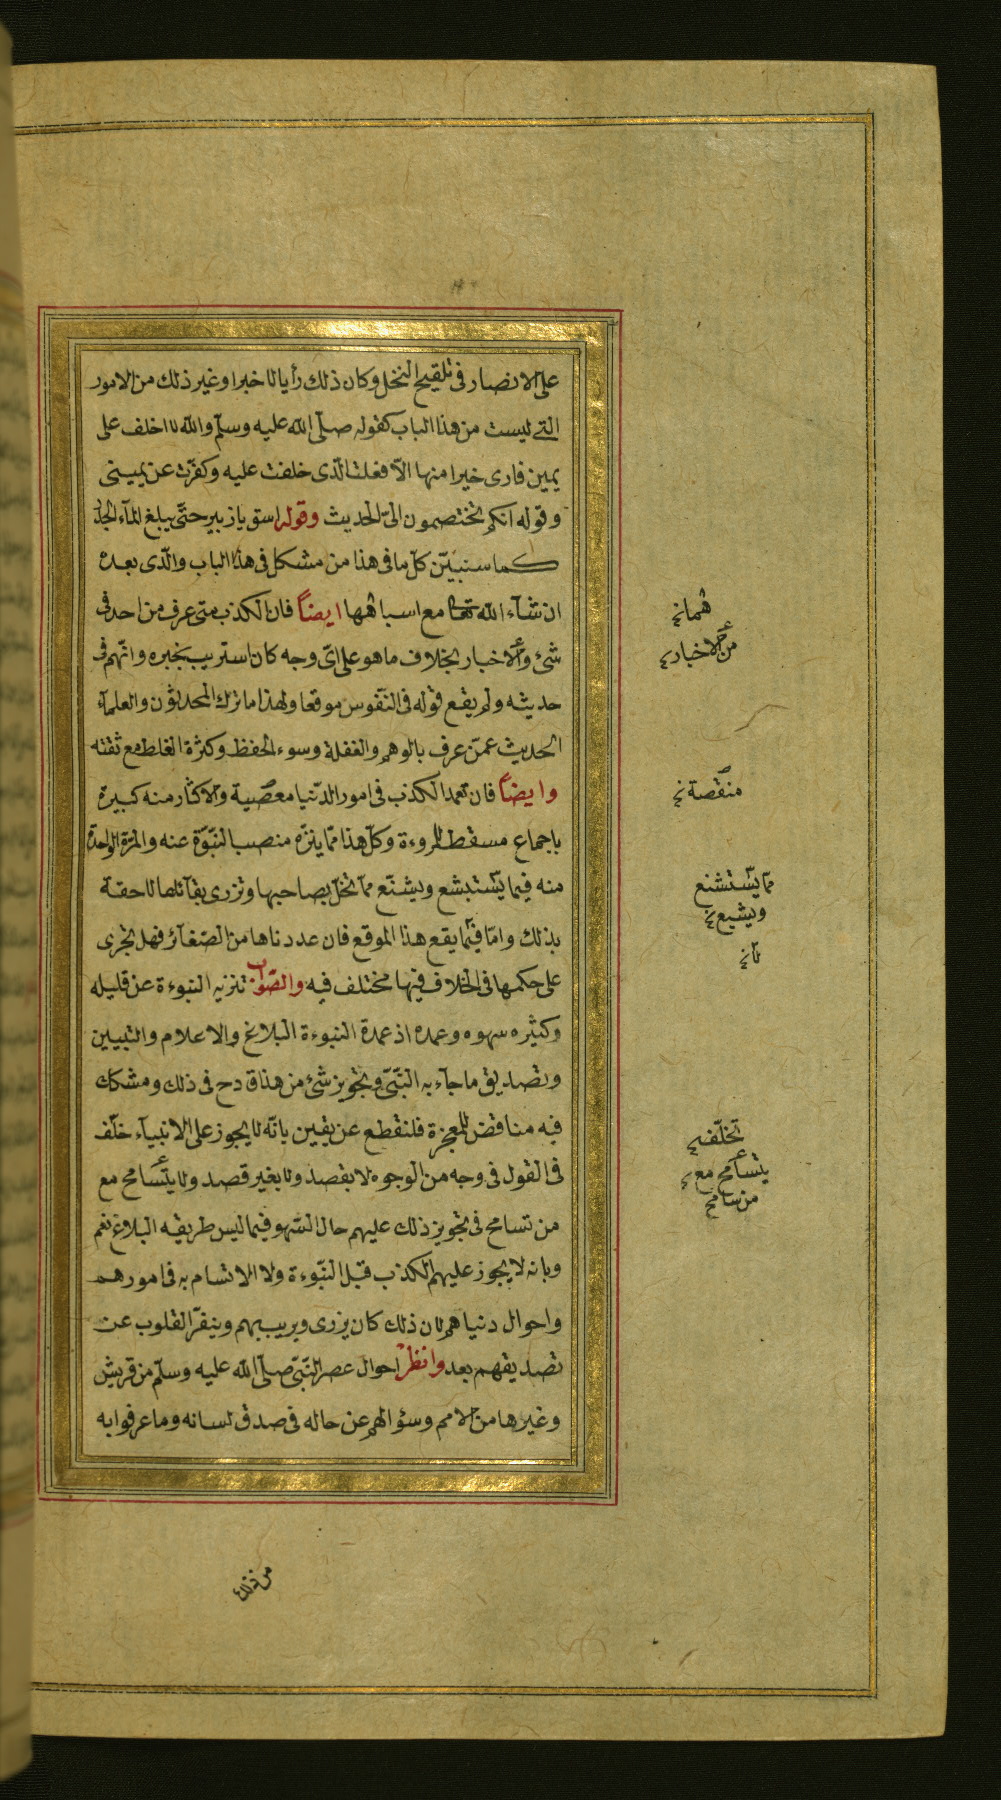 على الانصار فى تلقيح النخل وكان ذلك رأيا لا خبرا وغير ذلك من الامور
التى ليست من هذا الباب كقوله صلّى الله عليه وسلّم والله لا اخلف على
يمين فارى خيرا منها الّا فعلت الّذى حلفت عليه وكفّرت عن يمينى
وقوله انكم تختصمون الىّ الحديث وقوله اسق يا زبير حتّى يبلغ المآء الجدر
كما سنبيّن كلّ ما فى هذا من مشكل فى هذا الباب والّذى بعده
ان شآء الله تعالى مع اسباههما ايضاً فان الكذب متى عرف من احد فى
شئ من الاخبار بخلاف ما هو على اىّ وجه كان استريب بخبره واتّهم فى
حديثه ولم يقع قوله فى النّفوس موقعا ولهذا ما ترك المحدثون والعلمآء
الحديث عمّن عرف بالوهم والغفلة وسوء الحفظ وكثرة الغلط مع ثقته
وايضاً فان تعمد الكذب فى امور الدّنيا معصية والاكثار منه كبيرة
باجماع مسقط للمروءة وكلّ هذا ممّا ينزّه منصب النّبوّة عنه والمرّة الواحدة
منه فيما يستبشع ويشنّع ممّا تخلّ بصاحبها وتزرى بقآئلها لاحقة
بذلك وامّا فيما يقع هذا الموقع فان عددناها من الصّغآئر فهل تجرى
على حكمها فى الخلاف فيها مختلف فيه والصّواب تنزيه النبوءة عن قليله
وكثيره سهوه وعمده اذ عمدة النبوءة البلاغ والاعلام والتبيين
وتصديق ما جآء به النّبىّ وتجويز شئ من هذا قادح فى ذلك ومشكك
فيه مناقض للمعجزة فلنقطع عن يقين بانّه لا يجوز على الانبيآء خلف
فى القول فى وجه من الوجوه لا بقصد ولا بغير قصد ولا يتسامح مع
من تسامح فى تجويز ذلك عليهم حال السّهو فيما ليس طريقه البلاغ نعم
وبانه لا يجوز عليهم الكذب قبل النّبوءة ولا الاتسام به فى امورهم
واحوال دنياهم لان ذلك كان يزرى ويريب بهم وينفّر القلوب عن
تصديقهم بعد وانظر احوال عصر النّبىّ صلّى الله عليه وسلّم من قريش
وغيرها من الامم وسؤالهم عن حاله فى صدق لسانه وما عرفوا به
من ذلك
من الاخبار
منقصة
ممّا يستشنع
ويشيع
تخلّف
يتسامح مع
من سامح